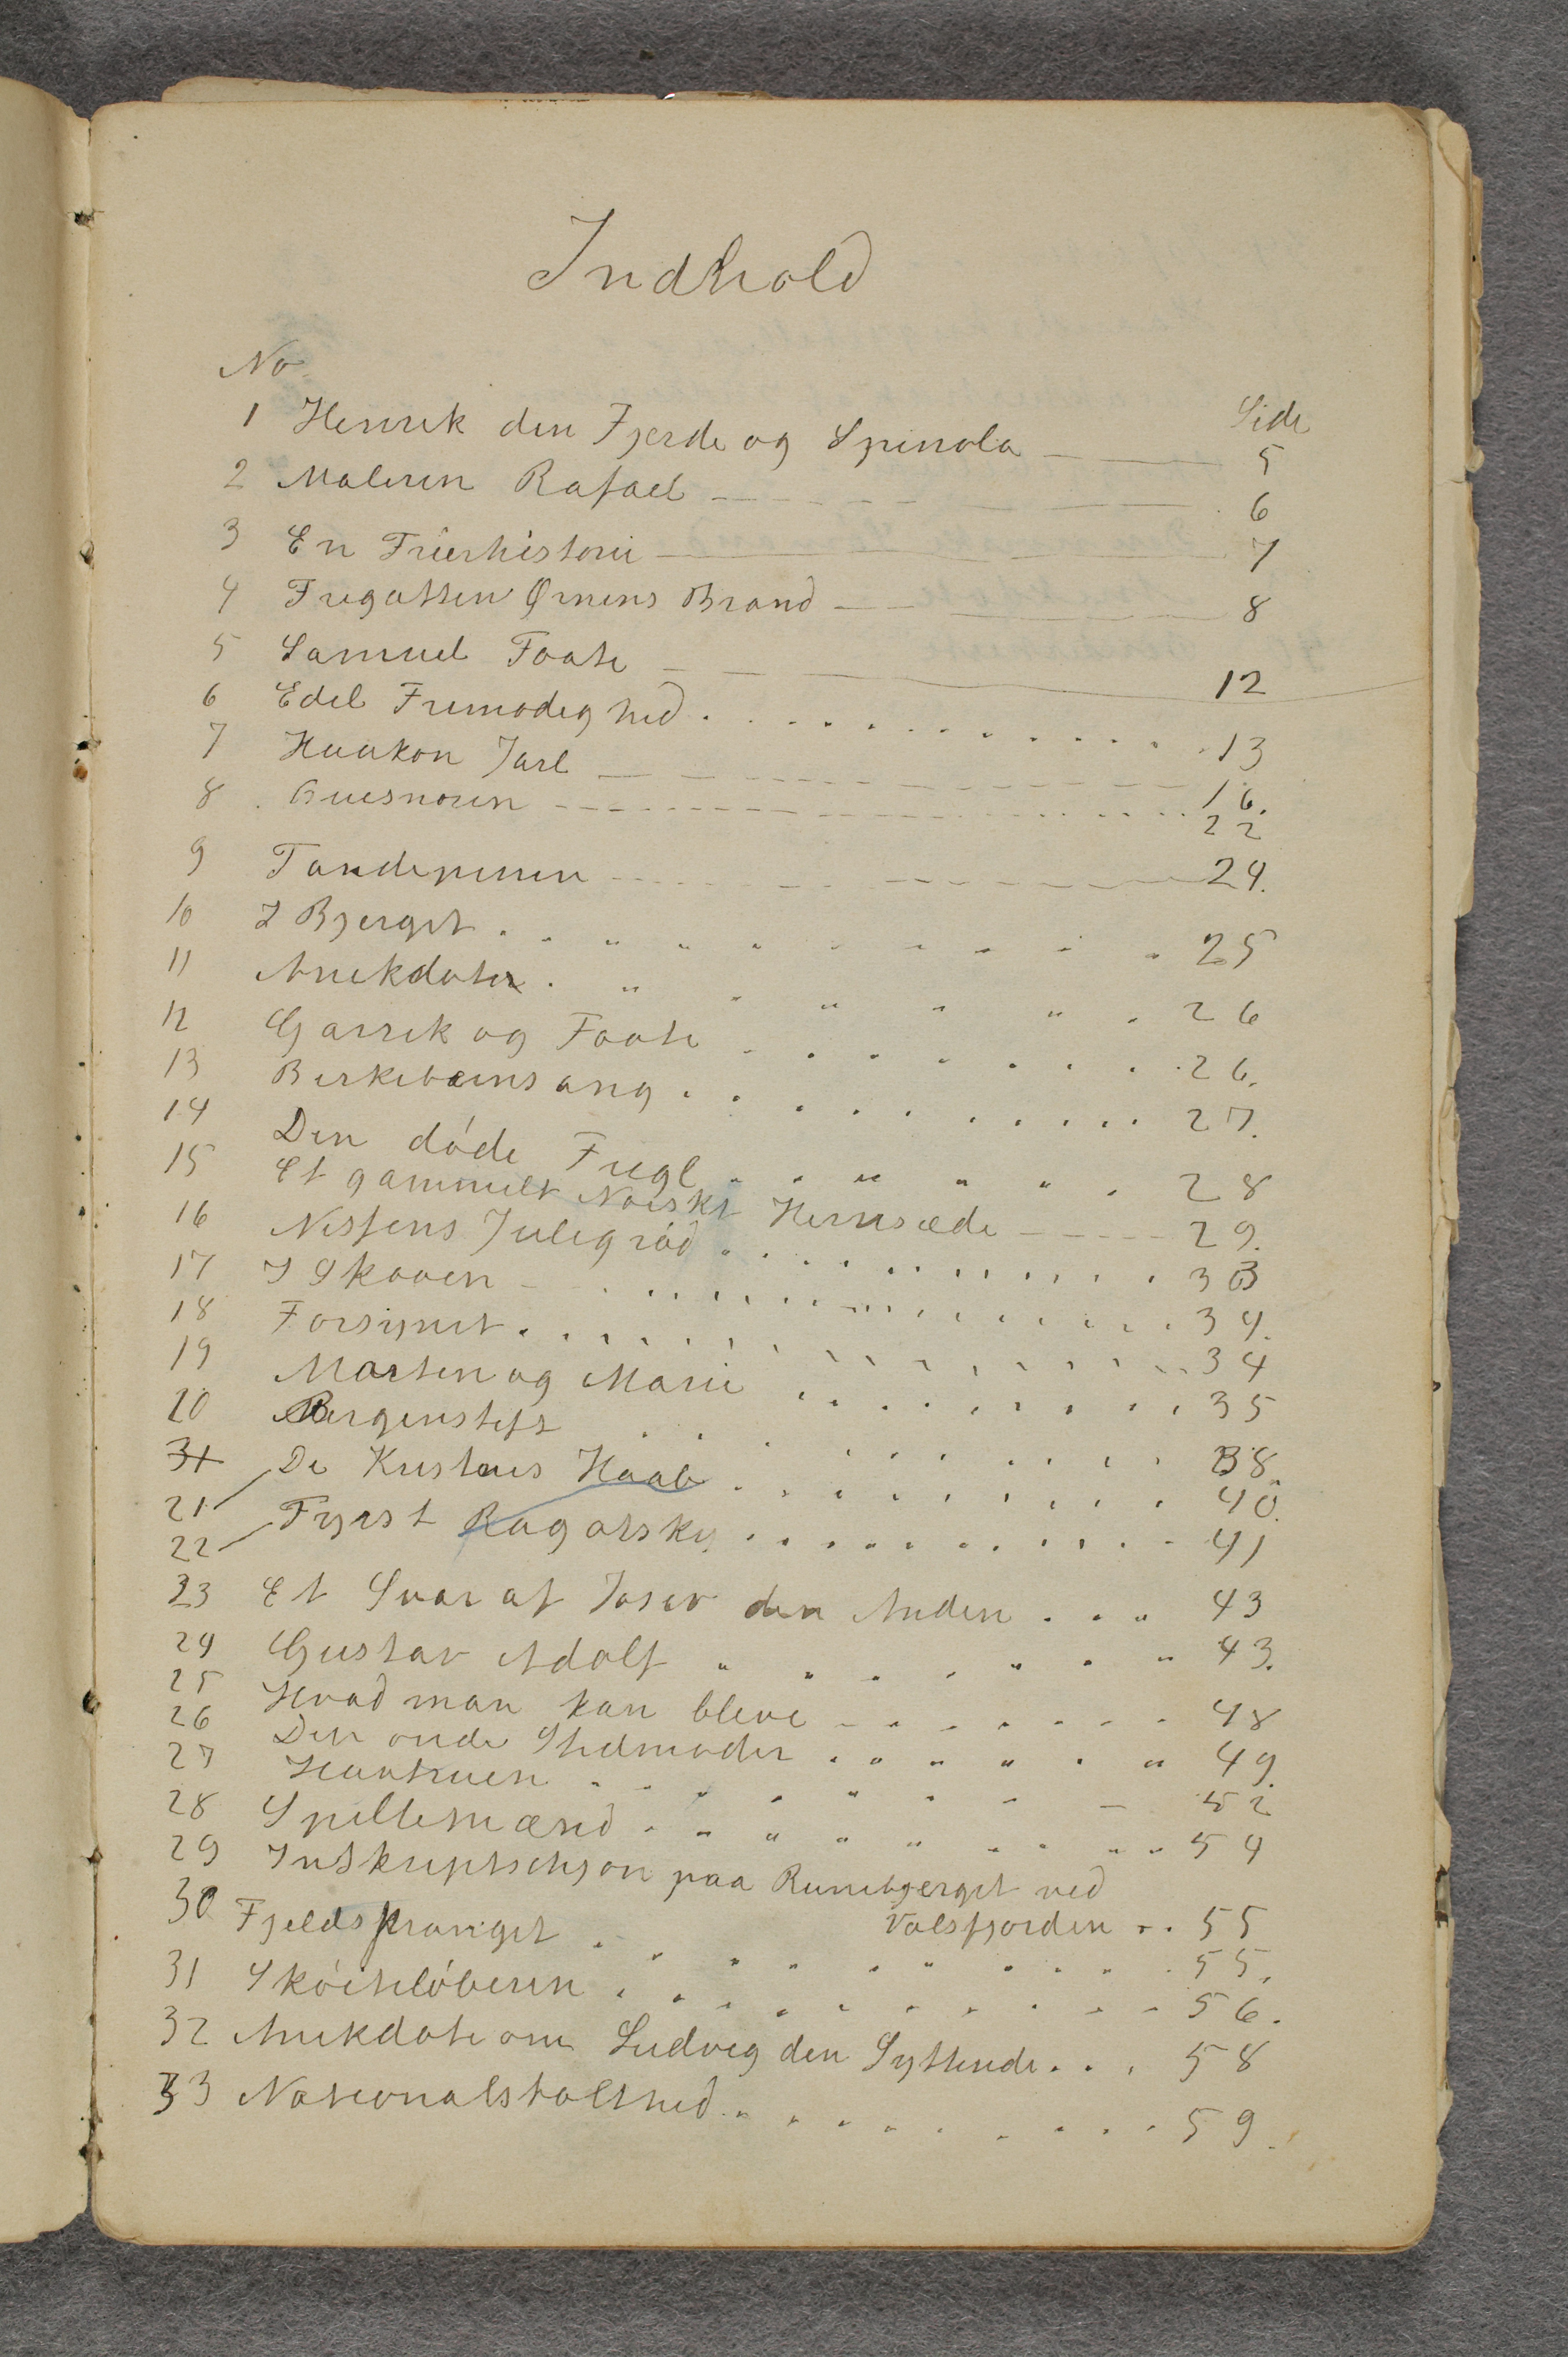 Indhold
No.
Side
1 Henrik den Fjerde og Spinola 5
2 Maleren Rafael 6
3 En Frierhistorie 7
4 Fregatten Ørnens Brand 8
5 Samuel Foote 12
6 Edel Frimodighed 13
7 Haakon Jarl 16.
8 22
9 Tandepinen 24.
10 I Bjerget 25
11 Anekdoter 26
12 Garrik og Foote 26.
13 Birkebeinsang 27.
14 Den døde Fugl 28
15 Et gammelt Norskt Herresæde 29.
16 Nissens Julegrød 33
17 I Skoven 34.
18 Forsynet 34
19 Morten og Marie 35
20 Bergenstift 38.
21 De Kristnes Haab 40.
22 Fyrst Ragotsky 41
23 Et Svar af Josev den Anden 43
24 Gustav Adolf 43.
25 Hvad man kan blive 48
26 Den onde Stedmoder 49.
27 Havfruen 52
28 Spillemænd 54
29 Inskriptschjon paa Runebjerget ved
Valsfjorden 55
30 Fjeldspranget 55.
31 Skøiteløberen 56.
32 Anekdote om Ludvig den Syttende 58
33 Nationalstolthed 59.